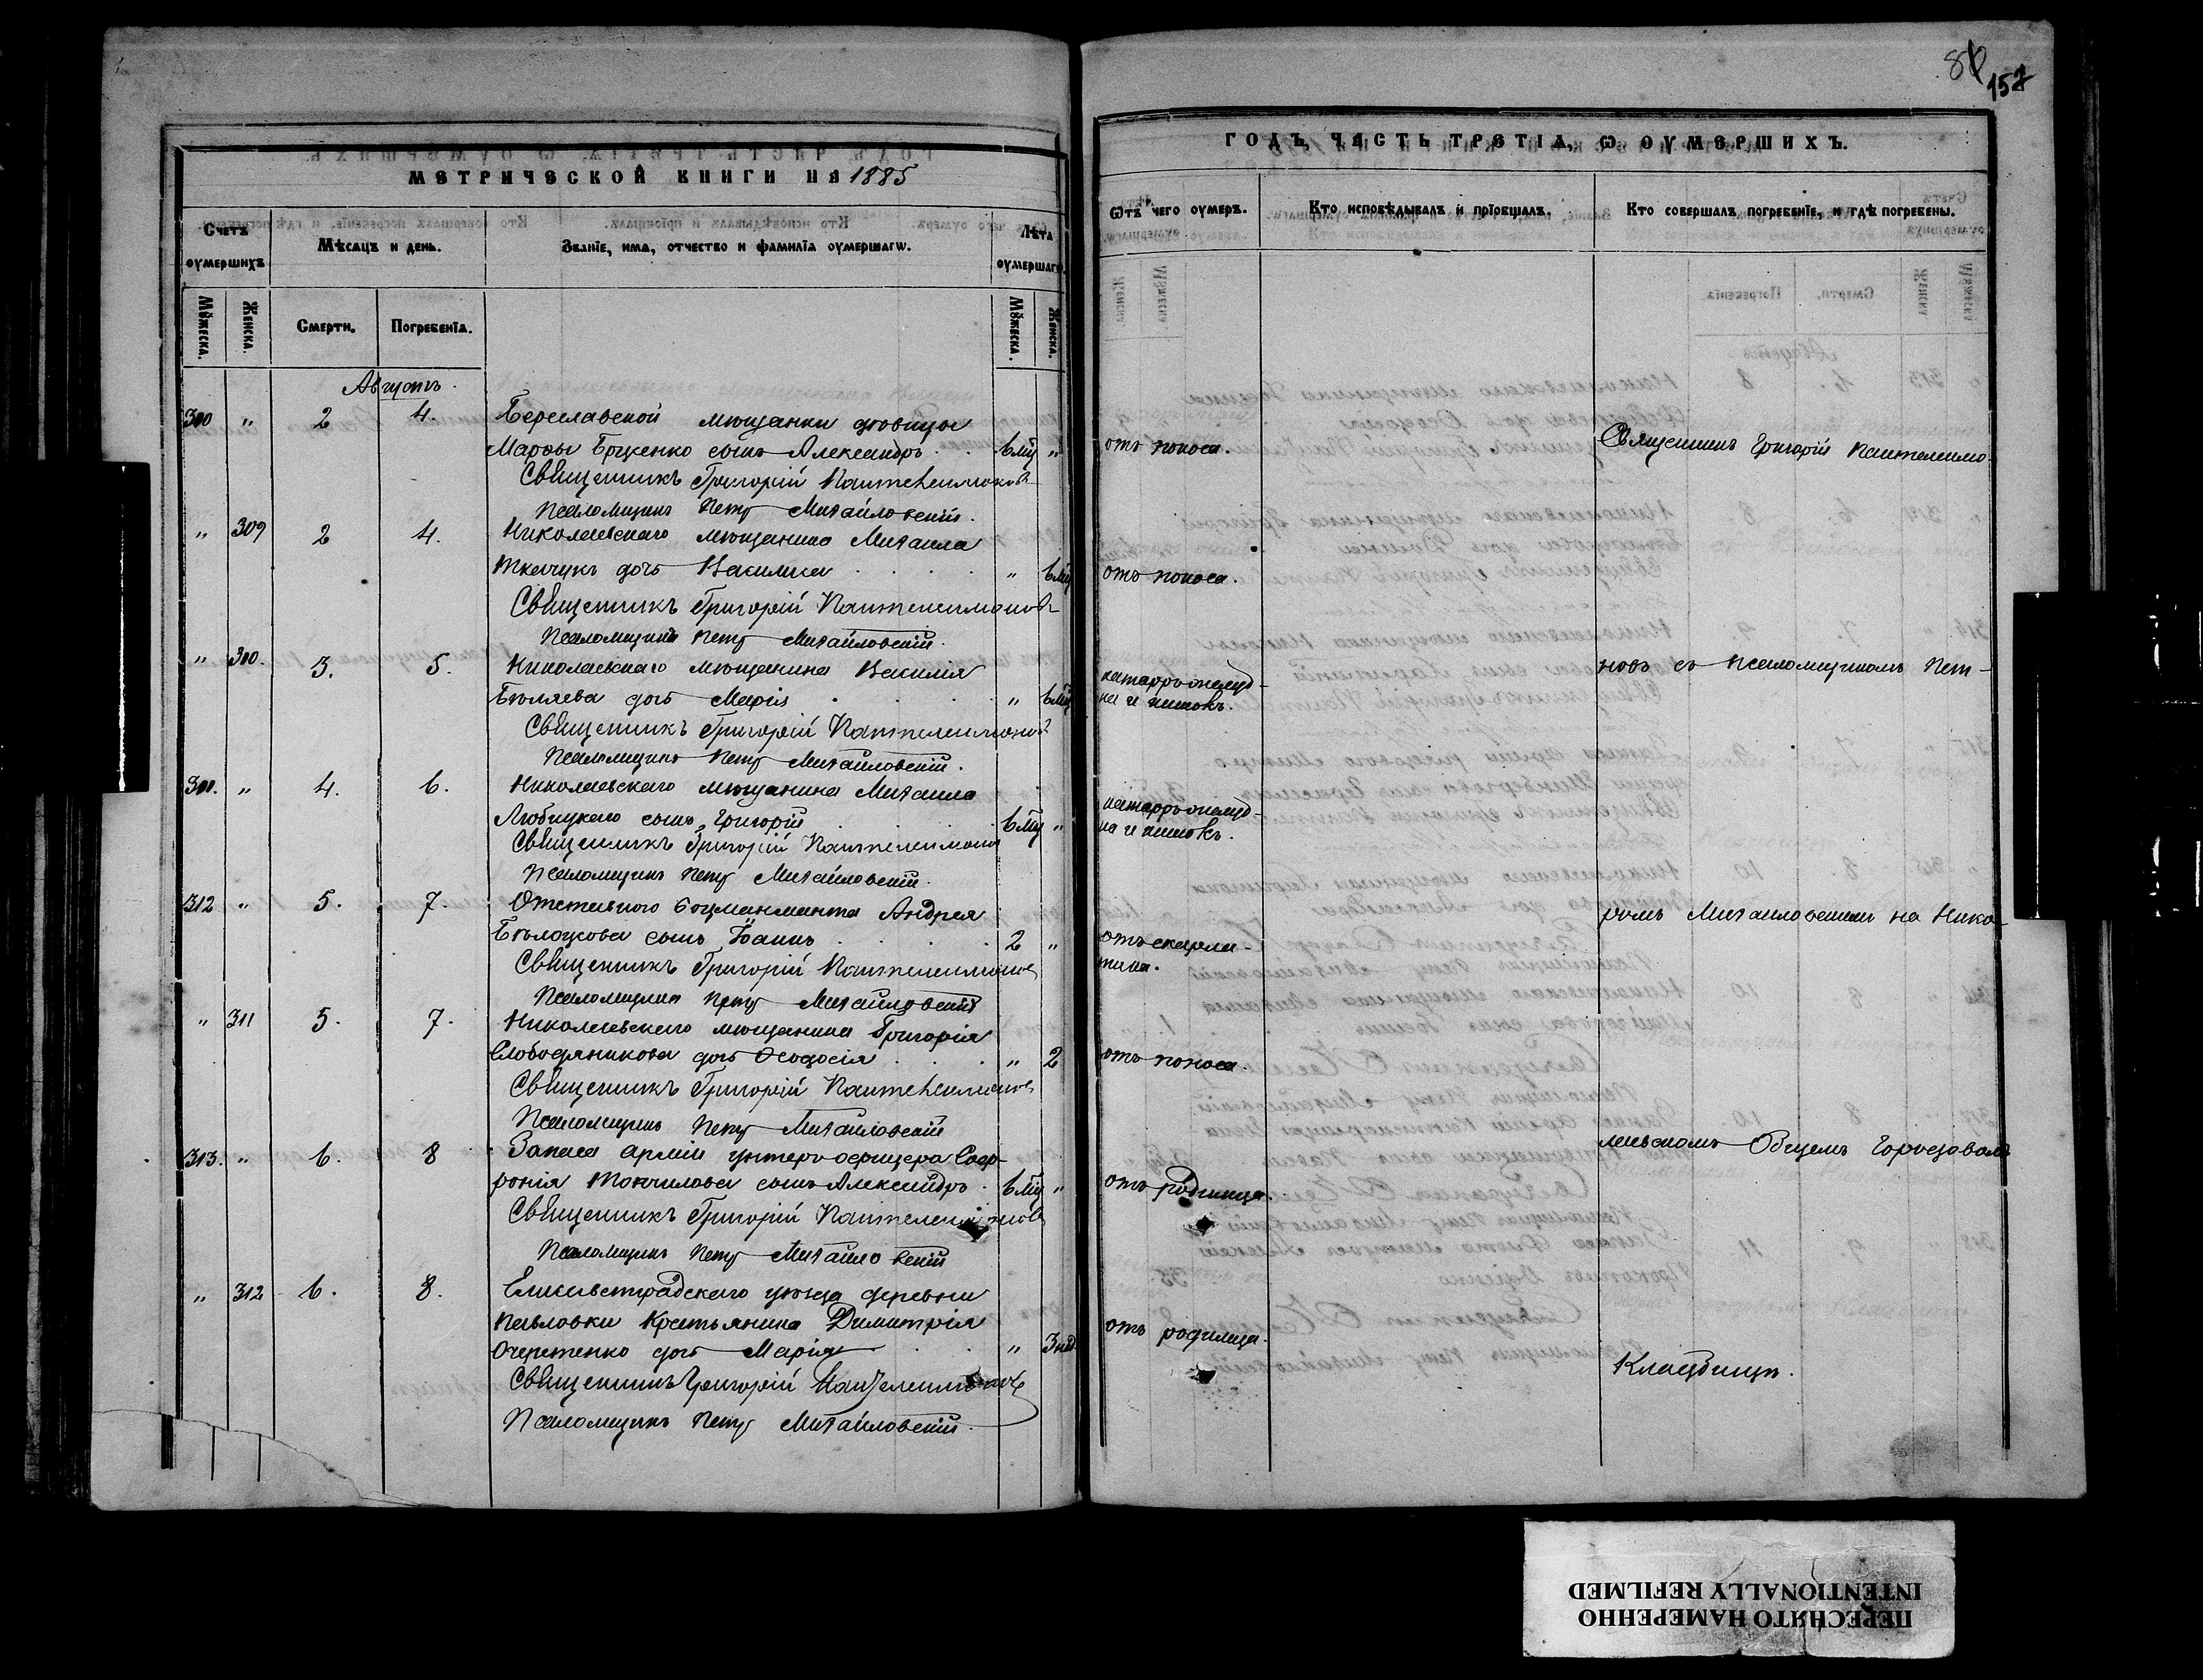 МЕТРИЧЕСКОЙ КНИГИ НА 1885
Счетъ оумершихъ
Мѣсяцъ и день.
Званїе, имѧ, отчество и фамилїѧ оумершагѡ.
Лѣта оумершагѡ.
Мꙋжеска.
Женска.
Смерти.
Погребенїѧ.
Мꙋжеска.
Женска.
Августъ.
310 " 2 4. Береславской мѣщанки дѣвицы
Марѳы Боженко сынъ Александръ 6 мц "
Священникъ Григорій Пантелеимоновъ
Псаломщикъ Петръ Михайловскій.
" 309 2 4. Николаевскаго мѣщанина Михаила
Ткачукъ дочь Василиса " 6 мц
Священникъ Григорій Пантелеимоновъ
Псаломщикъ Петръ Михайловскій.
" 310. 3. 5. Николаевскаго мѣщанина Василія
Бѣляева дочь Марія " 6 мц
Священникъ Григорій Пантелеимоновъ
Псаломщикъ Петръ Михайловскій.
311. " 4. 6. Николаевскаго мѣщанина Михаила
Любицкаго сынъ Григорій 6 мц "
Священникъ Григорій Пантелеимоновъ
Псаломщикъ Петръ Михайловскій.
312 " 5. 7. Отставного боцманмата Андрея
сынъ Іоаннъ 2 "
Священникъ Григорій Пантелеимоновъ
Псаломщикъ Петръ Михайловскій
" 311 5. 7. Николаевскаго мѣщанина Григорія
Слободяникова дочь Ѳеодосія " 2
Священникъ Григорій Пантелеимоновъ
Псаломщикъ Петръ Михайловскій
313. " 6. 8 Запаса арміи унтеръ-офицера Соф-
ронія Томчилова сынъ Александръ 6 мц "
Священникъ Григорій Пантелеимоновъ
Псаломщикъ Петръ Михайловскій
" 312 6. 8. Елисаветградскаго уѣзда деревни
Павловки Крестьянина Димитрія
Очеретенко дочь Марія " 3 нед
Священникъ Григорій Пантелеимоновъ
Псаломщикъ Петръ Михайловскій.
157
ГОДЪ, ЧАСТЬ ТРЕТІѦ, Ѡ ОУМЕРШИХЪ.
Ѿтъ чего оумеръ.
Кто исповѣдывалъ и прїобщалъ.
Кто совершалъ погребенїе, и гдѣ погребены.
отъ поноса.
Священникъ Григорій Пантелеимо-
отъ поноса.
новъ съ Псаломщикомъ Пет-
катарръ желуд-
ка и кишокъ.
катарръ желуд-
ка и кишокъ.
ромъ Михайловскимъ на Нико-
отъ скарла-
тина.
отъ поноса.
лаевскомъ Общемъ Городскомъ
отъ родимца.
отъ родимца.
Кладбищѣ.
ПЕРЕСНЯТО НАМЕРЕННО
INTENTIONALLY REFILMED